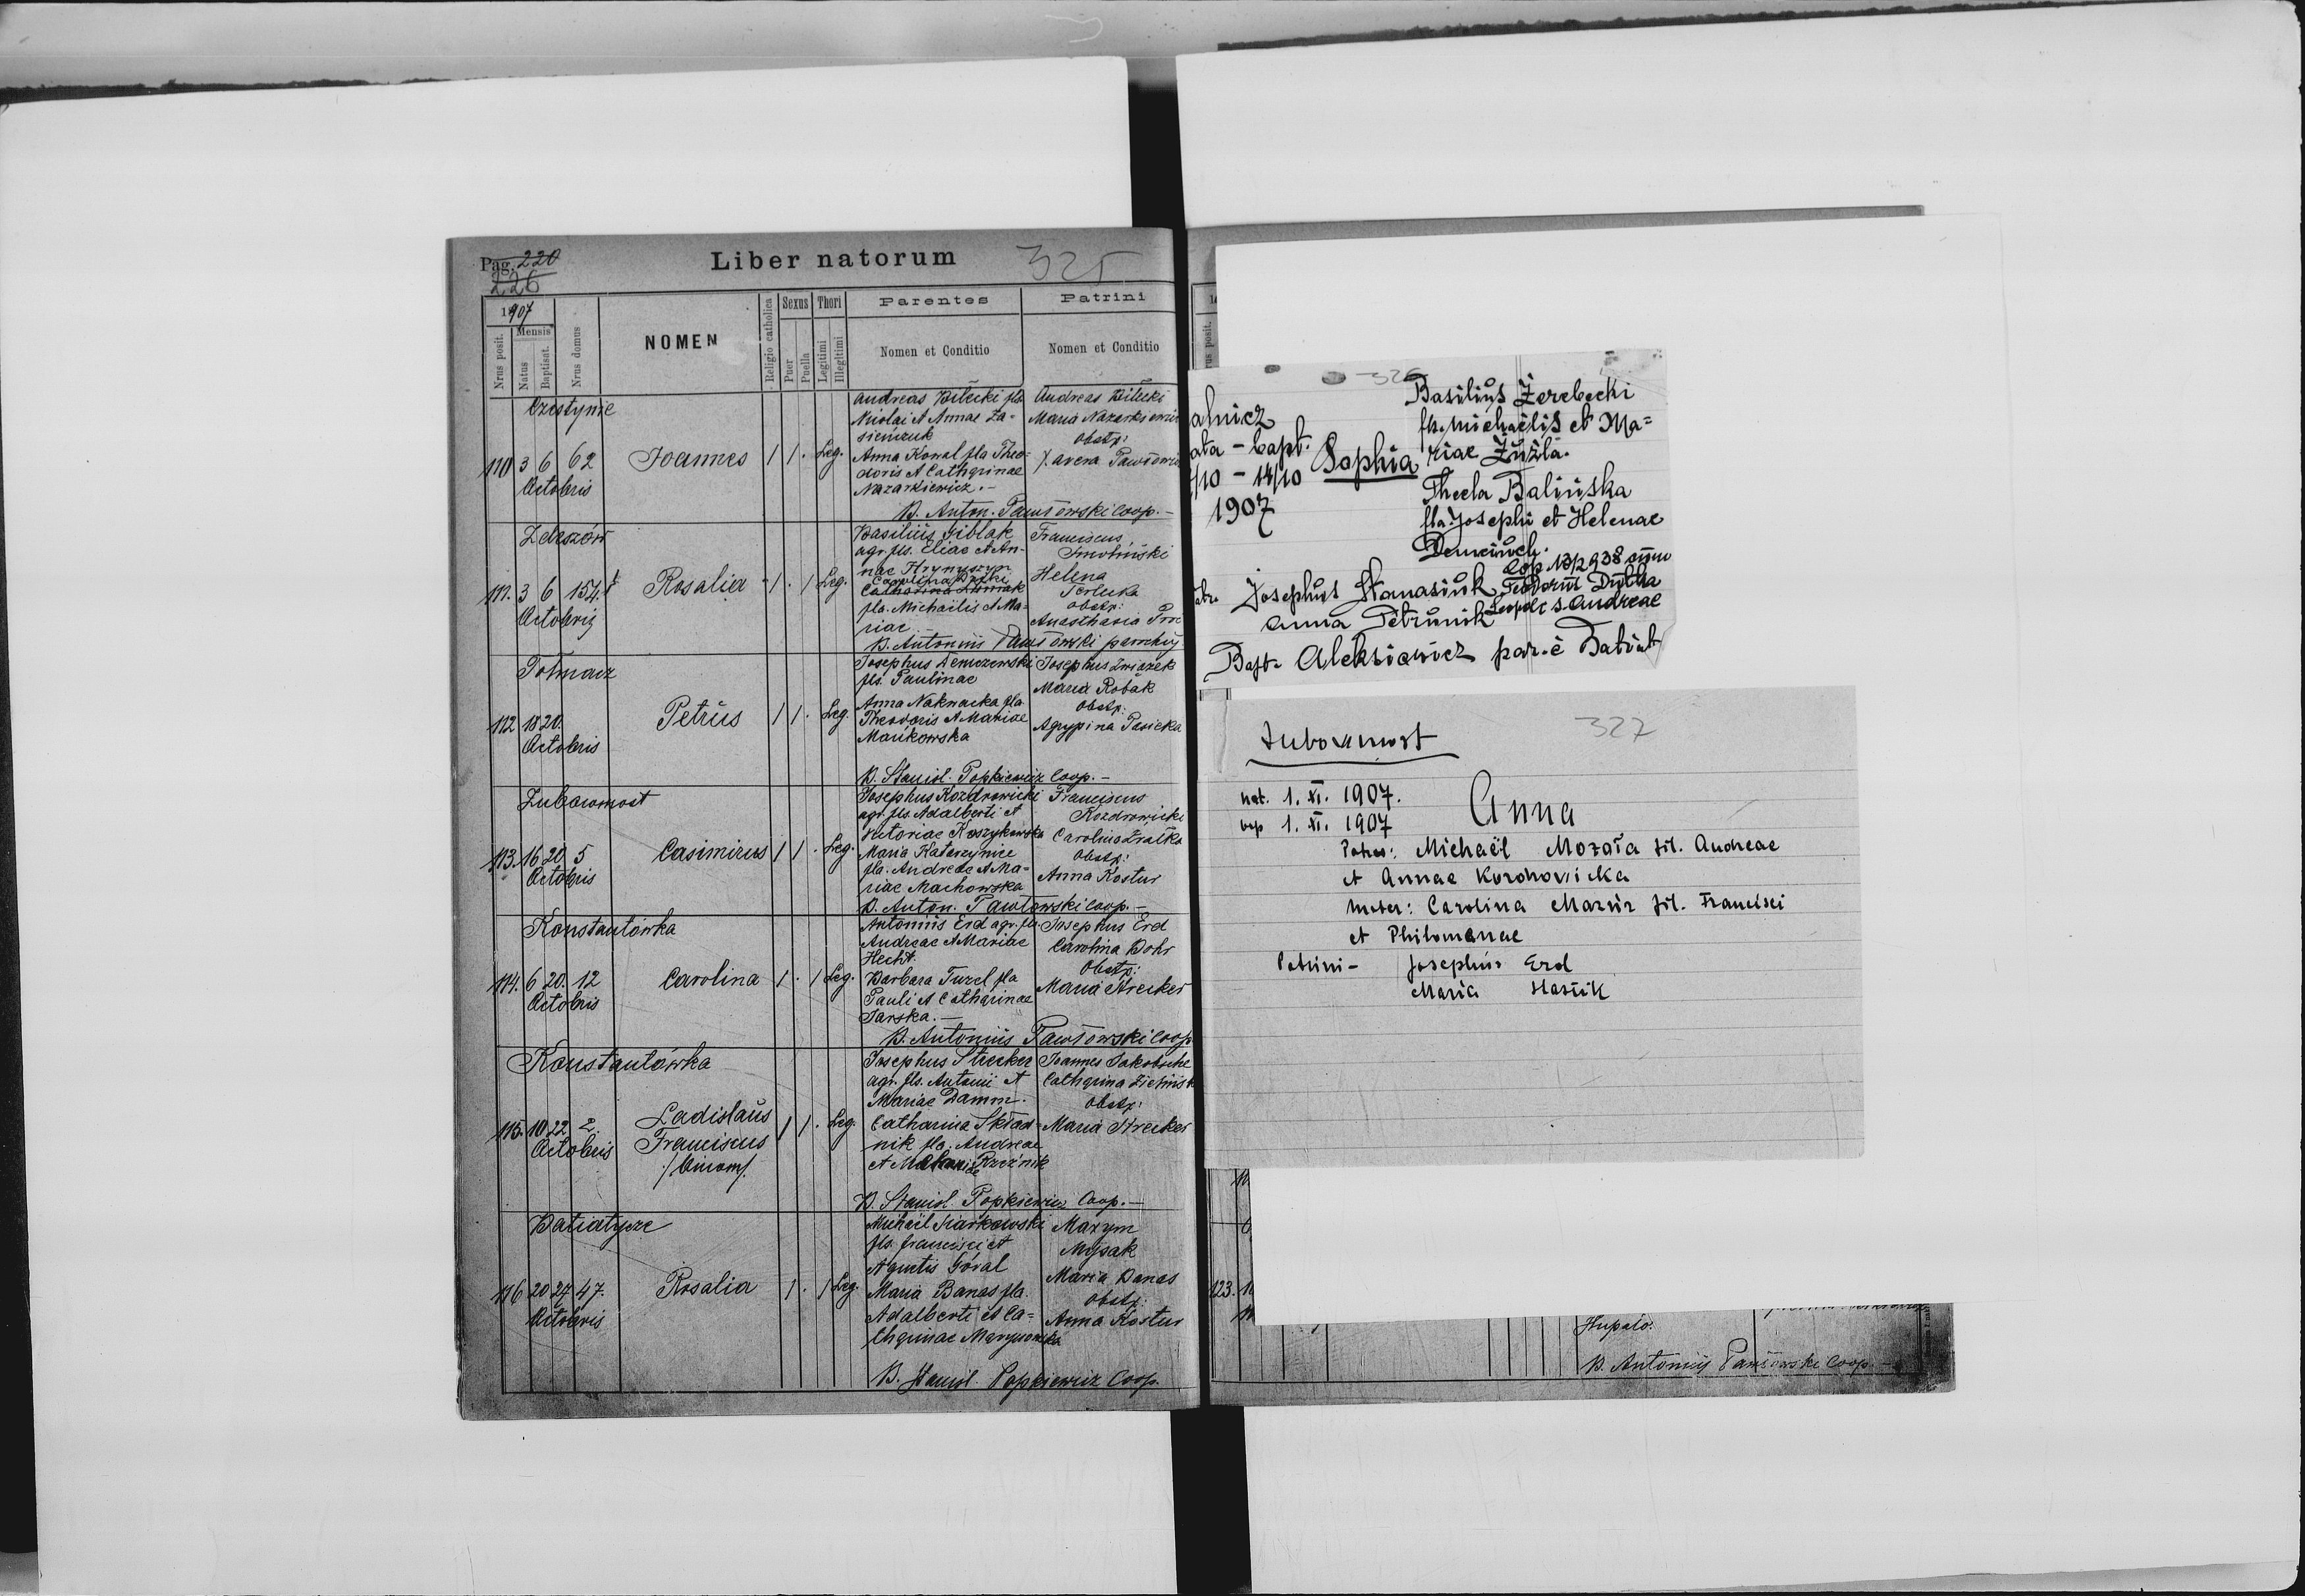 Pag. 220
226
Liber natorum
325
1907
Nrus posit.
Mensis
Natus
Baptisat.
Nrus domus
NOMEN
Religio catholica
Sexus
Puer
Puella
Thori
Legitimi
Illegitimi
Parentes
Nomen et Conditio
Patrini
Nomen et Conditio
110 3 6 62
Octobris
Joannes 1 1 . Leg.
Andreas Bilecki fls
Nicolai et Annae
Anna Kowal fla Theo-
doris et Catharinae
Nazarkiewicz.-
Andreas Bilecki
Maria
Obstp:
B. Anton. Pawłowski Coop.-
Zdeszów
111. 3 6 154.
Octobris
Rosalia 1 . 1 Leg.
Basilius Giblak
agr. fls. Eliae et An-
nae Hrynyszyn
Carolina
Catharina
fla. Michaëlis et Ma-
riae
Franciscus
Smoliński
Helena
Terlecka
Obstp:
Anasthasia
B. Antonius Pawłowski
112 18 20.
Octobris
Petrus 1 1 . Leg.
Josephus
fls. Paulinae
Anna Naknacka fla
Theodoris et Mariae
Mańkowska
Josephus Związek
Maria Robak
Obstp:
Agrypina Pasieka
B. Stanisl. Popkiewicz Coop.-
Zubowmost
113. 16 20 5
Octobris
Casimirus 1 1 . Leg.
Josephus Kozdrowicki
agr. fls. Adalberti et
Victoriae Koszykowska
Maria Katarzynice
fla. Andreae et Ma-
riae Machowska
Franciscus
Kozdrowicki
Carolina
Obstp:
Anna Kostur
B. Anton. Pawłowski Coop.-
Konstantówka
114. 6 20. 12
Octobris
Carolina 1 . 1 Leg.
Antonius Erd agr. fls.
Andreae et Mariae
Hecht.
Barbara Turel fla
Pauli et Catharinae
Jarska.-
Josephus Erd
Carolina Dohr
Obstp:
Maria Strecker
B. Antonius Pawłowski Coop.
Konstantówka
115. 10 22 2.
Octobris
Ladislaus
Franciscus
/binom/.
1 1 . Leg.
Josephus Strecker
agr. fls. Antonii et
Mariae Damm.
Catharina Skład-
nik fla. Andreae
et Mariae Rzeźnik
Joannes
Catharina
Obstp:
Maria Strecker
B. Stanisl. Popkiewicz Coop.-
Batiatycze
116 20 27 47.
Octobris
Rosalia 1 . 1 Leg.
Michaël Siarkowski
fls. Francisci et
Agnetis Góral
Maria Banas fla.
Adalberti et Ca-
tharinae
Maxym
Mysak
Maria Banas
Obstp:
Anna Kostur
B. Stanisl. Popkiewicz Coop.
326
alnicz
ata - bapt.
/10 - 14/10
1907
Sophia
Basilius Żerebecki
fls. Michaëlis et Ma=
riae Żuźla.
Thecla Balińska
fla. Josephi et Helenae
Cop. 13/2 938 cum
Teodorus Dutka
Leopoli S. Andreae
Josephus Stanasiuk
Anna Petrunik
Bapt. Aleksiewicz par.
327
Zubowmost
nat. 1. XI. 1907.
bap 1. XI. 1907
Anna
Pater: Michaël Mozoła fil. Andreae
et Annae
Mater: Carolina Mazur fil. Francisci
et Philomenae
Patrini - Josephus Erd
Maria Hasiuk
123.
Hupało.
B. Antonius Pawłowski Coop.-